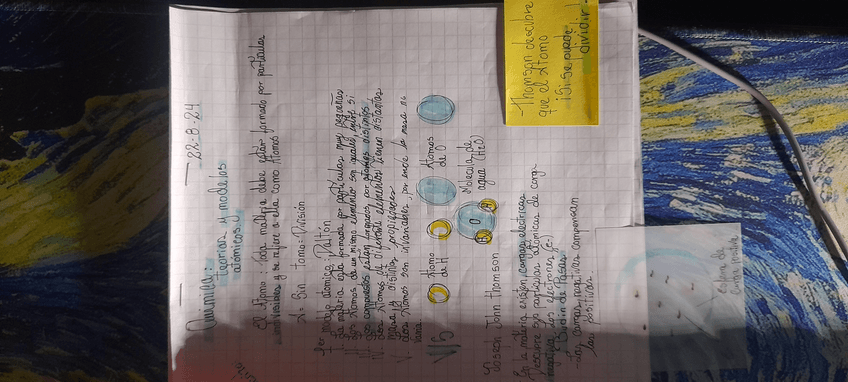 22-8-24
Química: Teorías y modelos
atómicos.
El átomo: Toda materia debe estar formado por partículas
indivisibles y se refiere a ella como átomos
A= Sin tomo= División
1er modelo atómico: Dalton
La materia está formada por partículas muy pequeñas
Los átomos de un mismo elemento son iguales entre sí
Los compuestos están formados por átomos distintos
Los átomos de diferentes elementos tienen distintas
masa y distintas propiedades
Los átomos son invariables, por ende la masa no
varía
Átomo
de H
Átomos
de O
Molécula de
agua (H2O)
H
O
H
Joseph John Thomson
En la materia existen cargas eléctricas
Descubre las partículas atómicas de carga
negativa: los electrones (e-)
Budín de Pasas
las cargas negativas compensan
las positivas.
Esfera de
carga positiva
Thomson descubre
que el átomo
¡Si se puede
dividir!